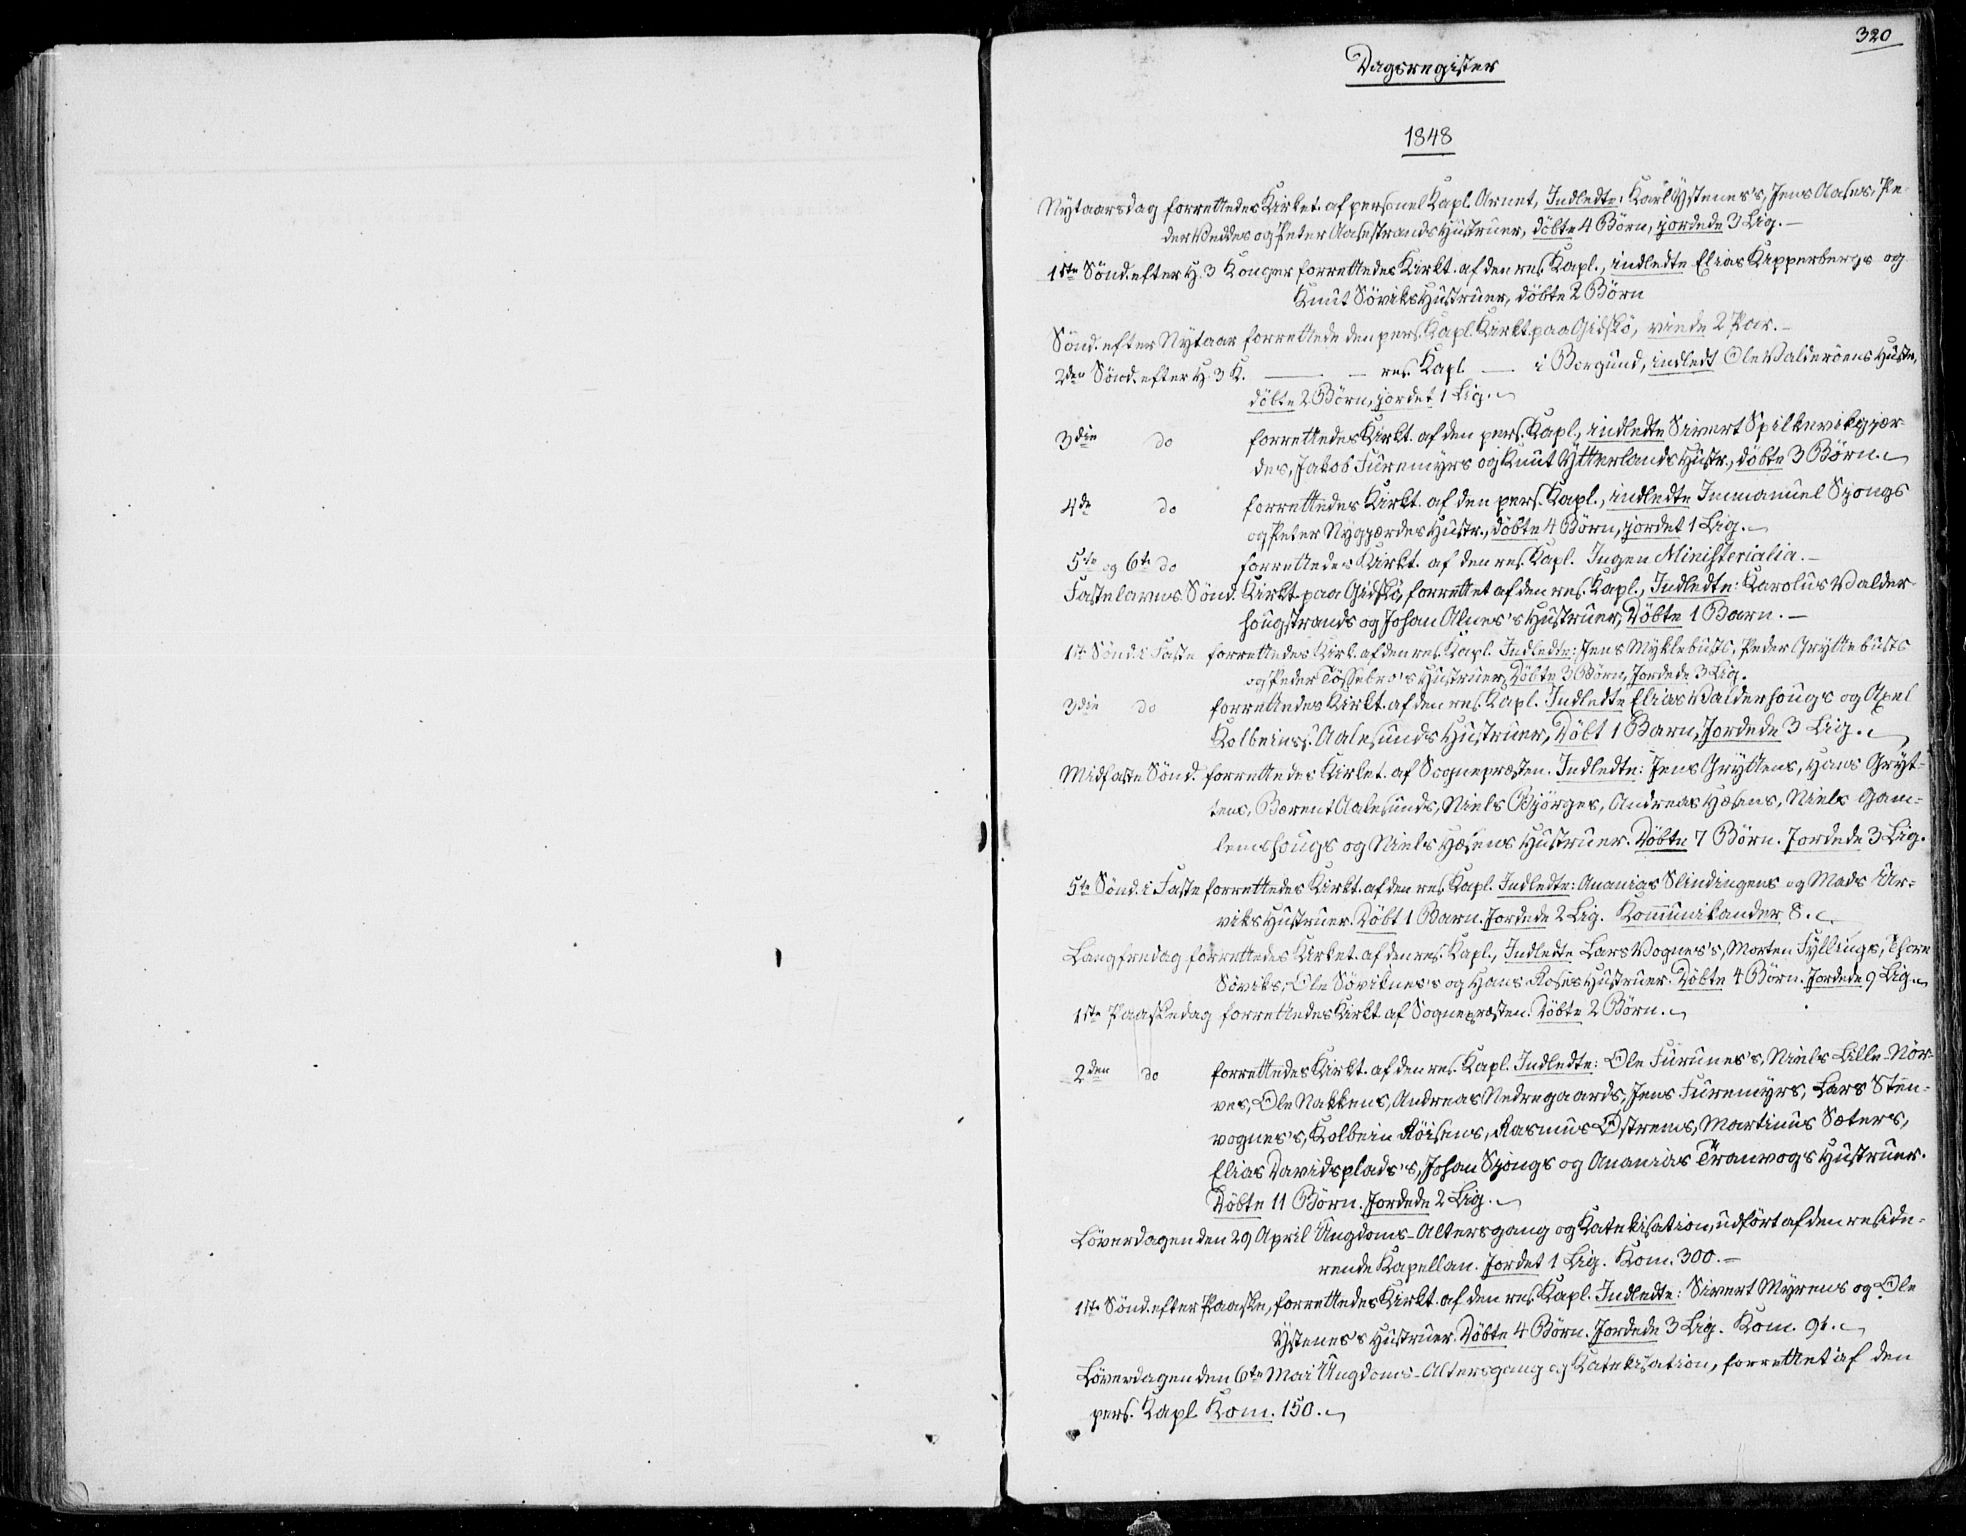 320
Dagsregister
1848
Nytaarsdag forrettedes Kirket. af personel Kapl. Arnet, Indledte: Karl Ystenes's, Jens Aases, Pe-
der Veddes og Peter Aasestrands Hustruer, döbte 4 Börn, jordede 3 Lig. —
1ste Sönd. efter H. 3 Konger forrettedes Kirkt. af den res. Kapl., indledte Elias Kipperbergs og
Knut Söviks Hustruer, döbte 2 Börn
Sönd. efter Nytaar forrettede den pers. Kapl. Kirkt. paa Gidskö, viede 2 Par. —
2den Sönd. efter H. 3 K. — — res. Kapl. — i Borgund, indledt Ole Valderöens Hustr.,
döbte 2 Börn, jordet 1 Lig.
3die do forrettedes Kirkt. af den pers. Kapl., indledte Sivert Spilkevikgjær-
des, Jakob Furemyrs og Knut Ytterlands Hustr., döbte 3 Börn.
4de do forrettedes Kirkt. af den pers. Kapl., indledte Immanuel Sjongs
og Peter Nygjærdes Hustr., döbte 4 Börn, jordet 1 Lig. —
5te og 6te do forrettedes Kirkt. af den res. Kapl. Ingen Ministerialia. —
Fastelavns Sönd. Kirkt. paa Gidskö, forrettet af den res. Kapl., Indledte: Karolus Valder-
hougstrands og Johan Alnes's Hustruer, Döbte 1 Barn. —
1ste Sönd. i Faste forrettedes Kirkt. af den res. Kapl. Indledte: Jens Myklebusts, Peder Gryttebusts
og Peder Tössebro's Hustruer, Döbte 3 Börn, Jordede 3 Lig.
3die do forrettedes Kirkt. af den res. Kapl. Indledte Elias Valderhougs og Axel
Kolbeinss. Aalesunds Hustruer, Döbt 1 Barn, Jordede 3 Lig.
Midfaste Sönd. forrettedes Kirket. af Sognepræsten. Indledte: Jens Gryttens, Hans Gryt-
tens, Bærent Aalesunds, Niels Bjørges, Andreas Hæsens, Niels Gam-
lemshougs og Niels Hæsens Hustruer. Döbte 7 Börn. Jordede 3 Lig.
5te Sönd. i Faste forrettedes Kirkt. af den res. Kapl. Indledte: Ananias Slindingens og Mads Ur-
viks Hustruer. Döbt 1 Barn. Jordede 2 Lig. Kommunikander 8.
Langfredag forrettedes Kirket. af den res. Kapl., Indledte Lars Vognes's, Morten Fyllings, Thore
Söviks, Ole Söviknes's og Hans Roses Hustruer. Döbte 4 Börn. Jordede 9 Lig.
1ste Paaskedag forrettedes Kirkt af Sognepræsten. Döbte 2 Börn.
2den do forrettedes Kirkt. af den res. Kapl. Indledte: Ole Furunes's, Niels Lille-Nör-
ves, Ole Nakkens, Andreas Nedregaards, Jens Furemyrs, Lars Sten-
vognes's, Kolbein Röisens, Rasmus Østrems, Martinus Sæters,
Elias Davidsplads's, Johan Sjongs og Ananias Tranvogs Hustruer.
Döbte 11 Börn. Jordede 2 Lig.
Löverdagen den 29 April Ungdoms-Altersgang og Katekisation, udfört af den reside-
rende Kapellan. Jordet 1 Lig. Kom. 300. —
1ste Sönd. efter Paaske, forrettedes Kirkt. af den res. Kapl. Indledte: Sivert Myrens og Ole
Ystenes's Hustruer. Döbte 4 Börn. Jordede 3 Lig. Kom. 91.
Löverdagen den 6te Mai Ungdoms-Altersgang og Katekisation, forrettet af den
pers. Kapl. Kom. 150.